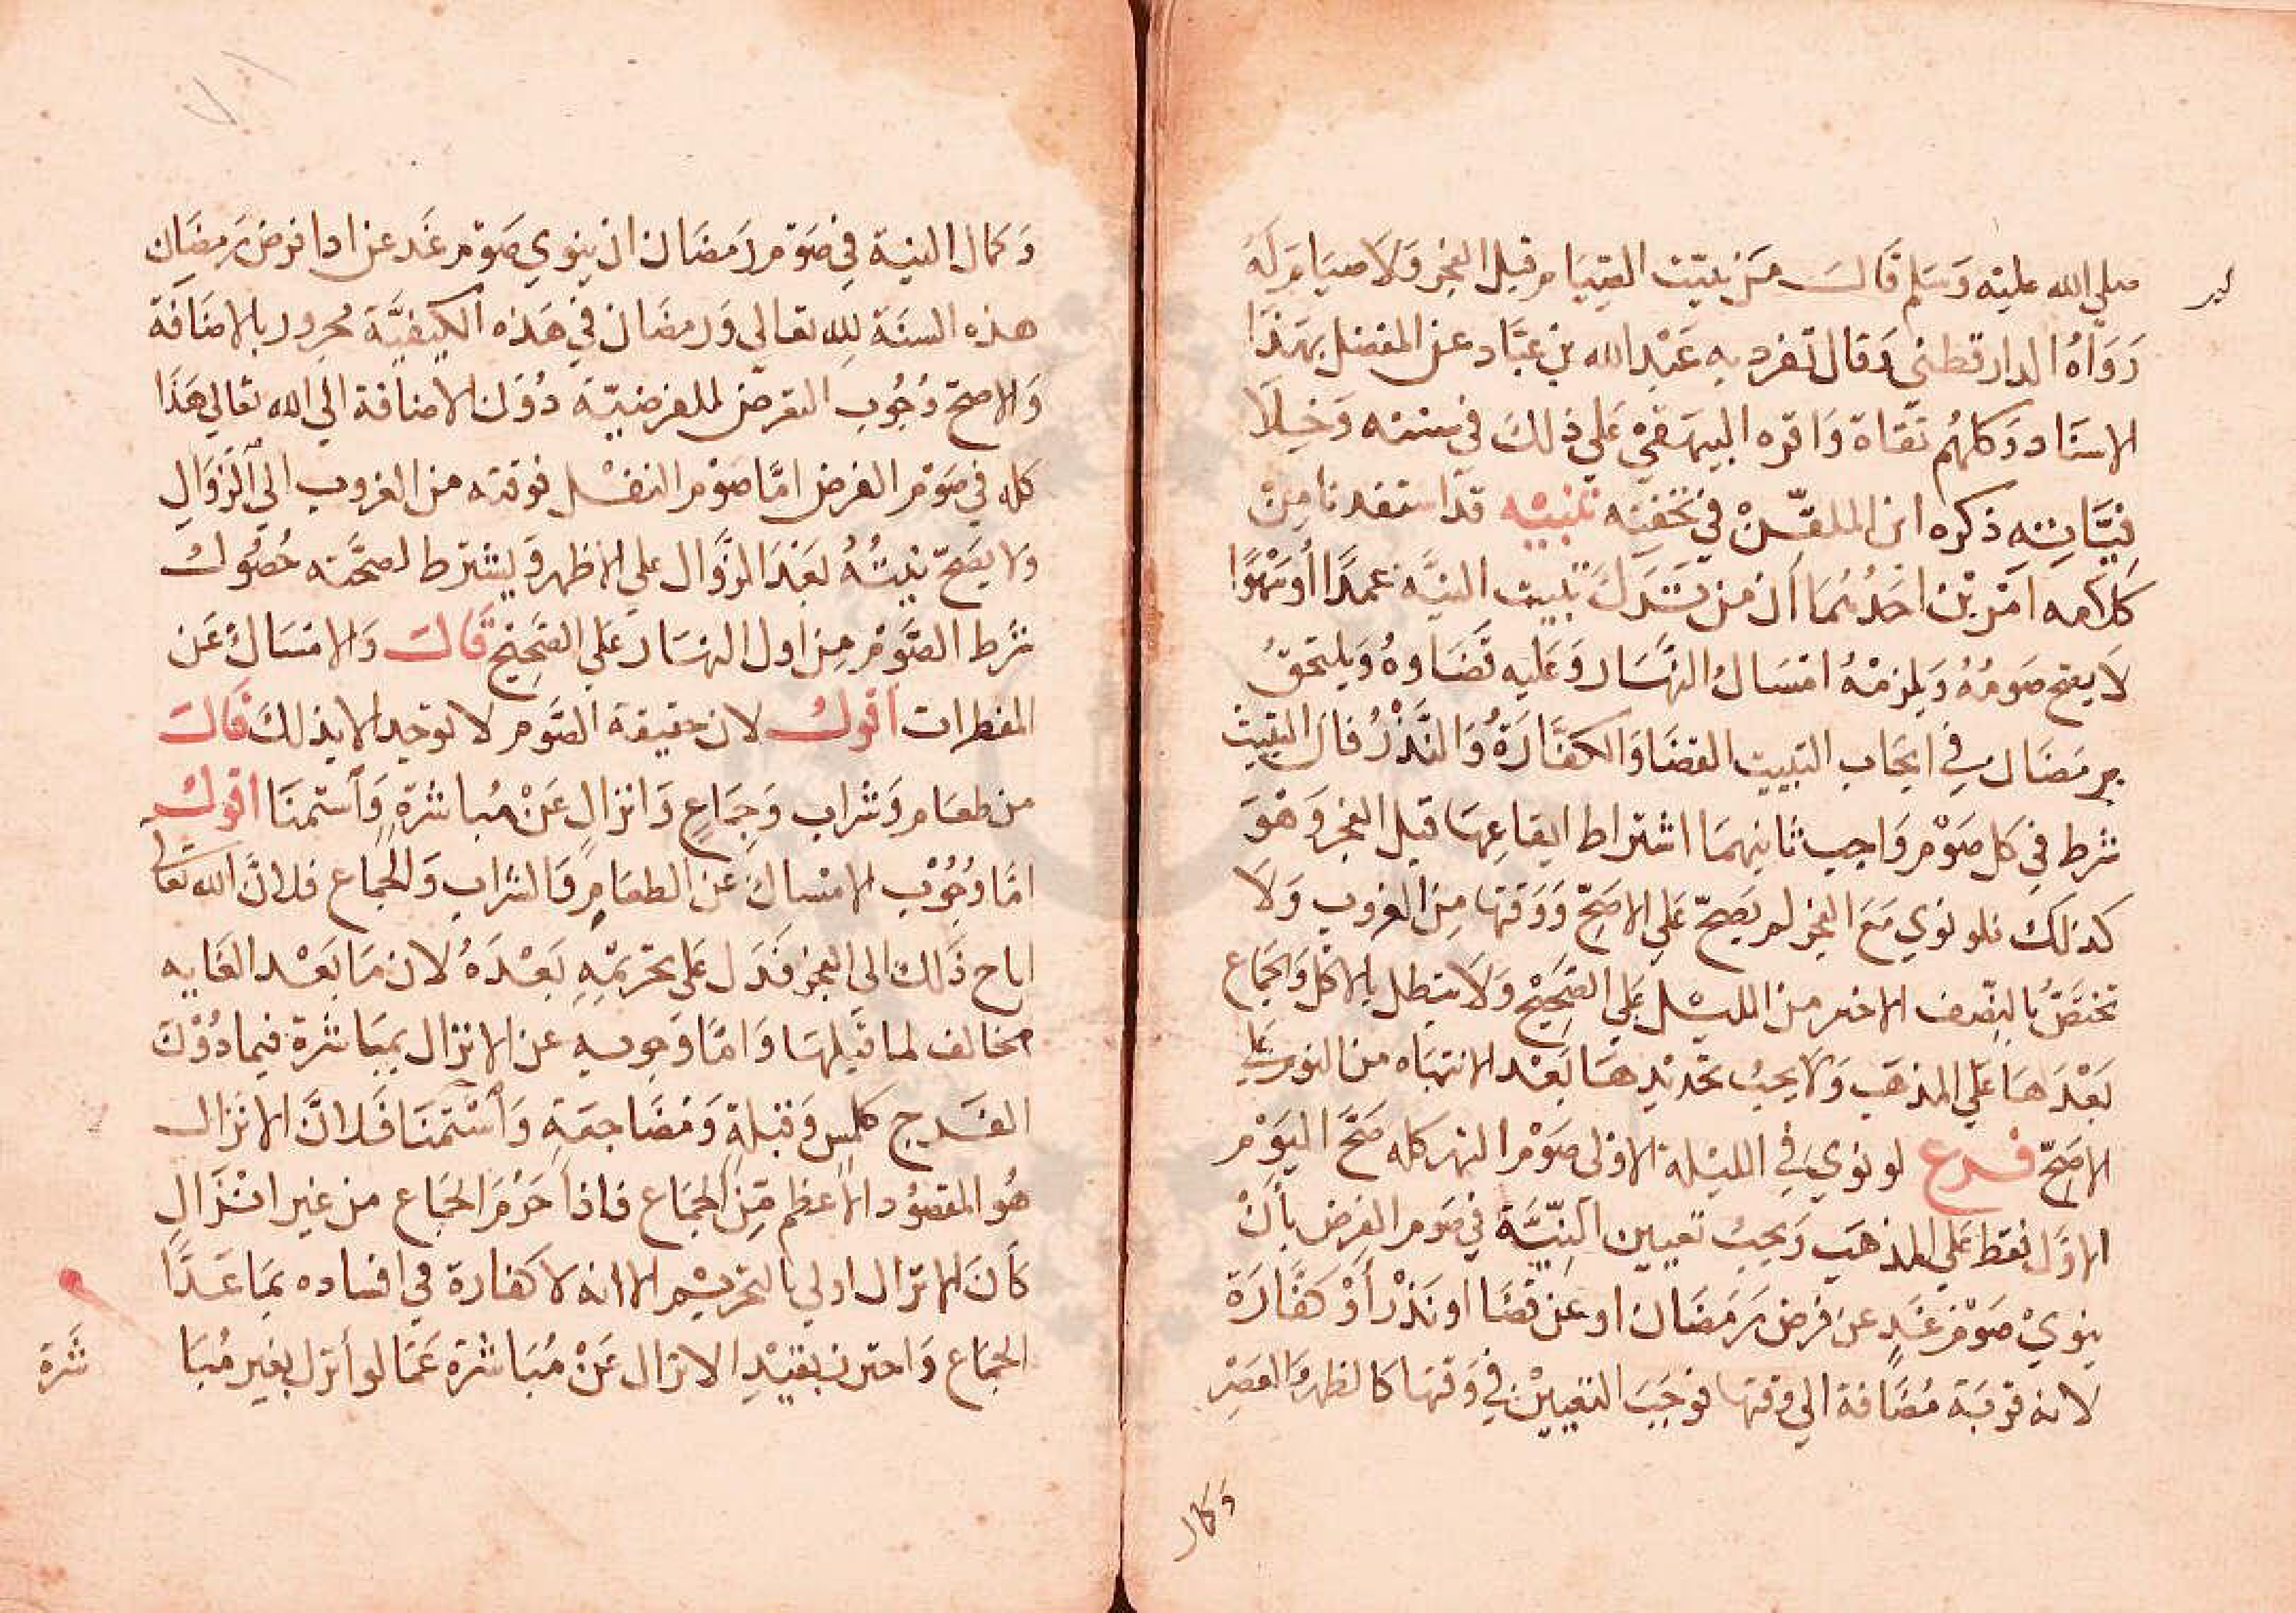 صلى الله عليه وسلم قال من يبيت الصيام قبل الفجر ولا صيام له
لم
رواه الدارقطني وقال تفرد به عبد الله بن عباد عن المفضل بهذا
الاسناد وكلهم ثقاة واقره البيهقي على ذلك في سننه وخلا
فياته ذكره ابن الملقن في تحفته تنبيه قد استفدنا من
كلامه امرين احدهما ان من ترك تبييت النية عمدا أو سهوا
لا يصح صومه ويلزمه امساك النهار وعليه قضاوه ويلتحق
برمضان في ايجاب التبييت القضا والكفارة والنذر فان التبييت
شرط في كل صوم واجب ثانيهما اشتراط ايقاعها قبل الفجر وهو
كذلك فلو نوي مع الفجر لم يصح على الاصح ووقتها من الغروب ولا
تختص بالنصف الاخير من الليل على الصحيح ولا تبطل بالاكل والجماع
بعدها على المذهب ولا يجب تجديدها بعد الانتباه من النوم على
الاصح فرع لو نوي في الليلة الاولى صوم الشهر كله صح اليوم
الاول فقط على المذهب ويجب تعيين النية في صوم الفرض بأن
ينوي صوم غد عن فرض رمضان او عن قضا او نذر أو كفارة
لانه قربة مضافة الي وقتها فوجب التعيين في وقتها كالظهر والعصر
وكمال
وكمال النية في صوم رمضان ان ينوي صوم غد عن ادا فرض رمضان
هذه السنة لله تعالي ورمضان في هذه الكيفية مجرور بالاضافة
والاصح وجوب التعرض للفرضية دون الاضافة الي الله تعالي هذا
كله في صوم الفرض امّا صوم النفل فوقته من الغروب الي الزوال
ولا يصح نيته بعد الزوال على الاظهر ويشترط لصحته حصول
شرط الصوم من اول النهار على الصحيح قال والامساك عن
المفطرات اقول لان حقيقة الصوم لا توجد الا بذلك قال
من طعام وشراب وجماع وانزال عن مباشرة واستمنا اقول
امّا وجوب الامساك عن الطعام والشراب والجماع فلان الله تعالى
اباح ذلك الى الفجر فدل على تحريمه بعده لان ما بعد الغايه
مخالف لما قبلها وامّا وجوبه عن الانزال بمباشرة فيما دون
الفرج كلمس وقبلة ومضاجعة واستمنا فلان الانزال
هو المقصود الاعظم من الجماع فاذا حرم الجماع من غير انزال
كان الانزال اولي بالتحريم الا انه لا كفارة في افساده بما عدا
الجماع واحترز بقيد الانزال عن مباشرة عما لو أنزل بغير مبا
شرة